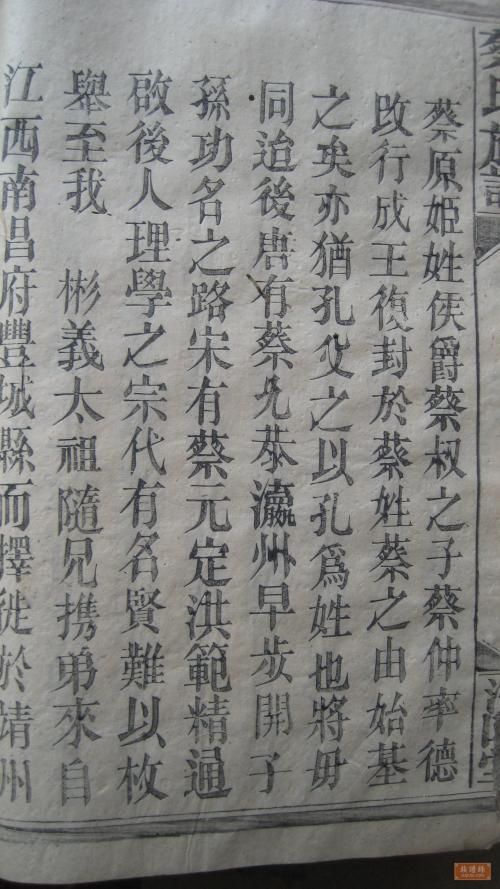 蔡氏族譜
濟陽堂
蔡原姬姓侯爵蔡叔之子蔡仲率德
改行成王復封於蔡姓蔡之由始基
之矣亦猶孔父之以孔爲姓也將毋
同迨後唐有蔡允恭瀛州早步開子
孫功名之路宋有蔡元定洪範精通
啟後人理學之宗代有名賢難以枚
舉至我 彬義太祖隨兄携弟來自
江西南昌府豐城縣而擇徙於靖州
族譜錄